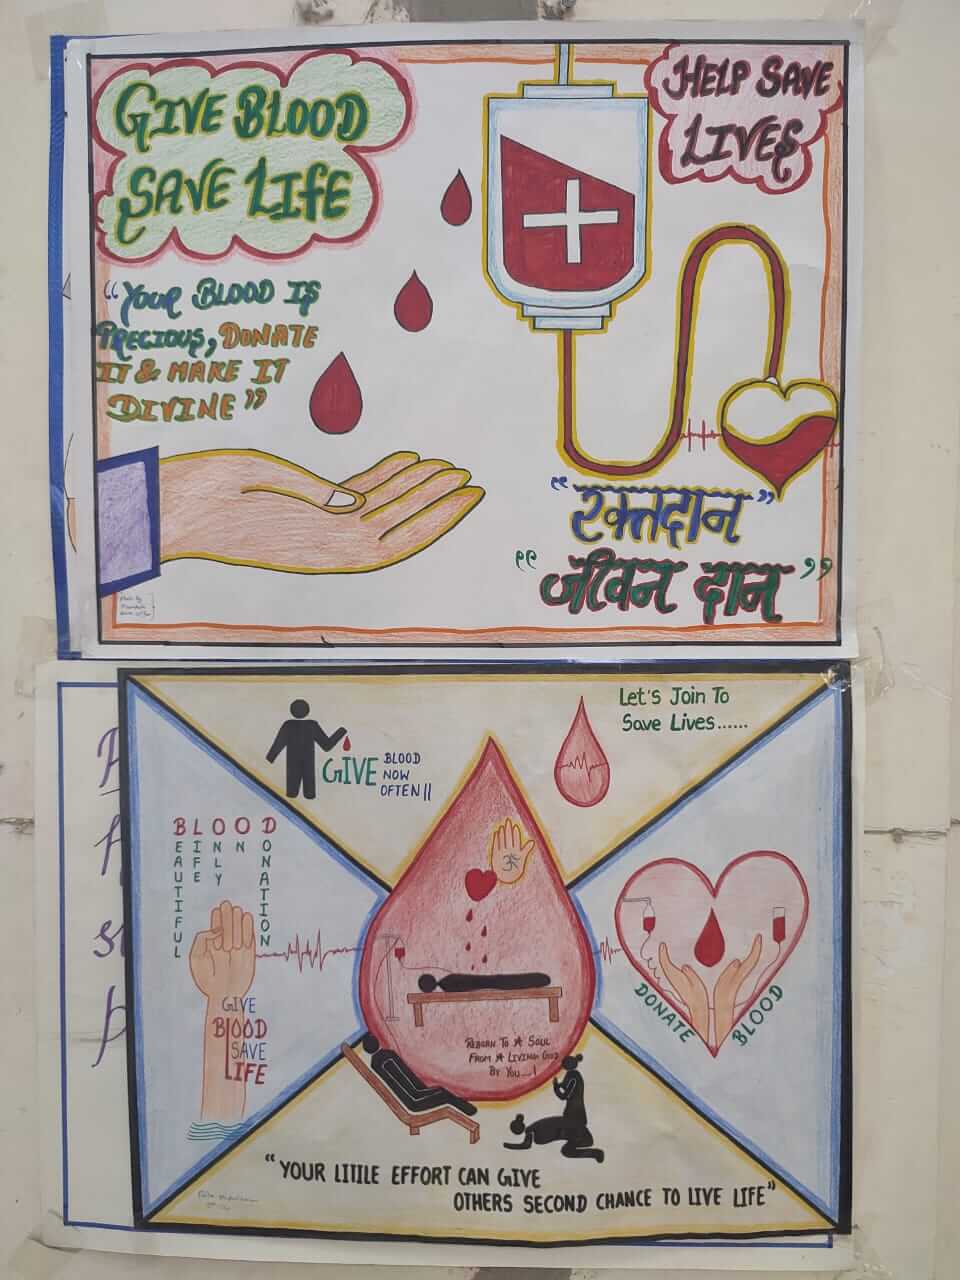 GIVE BLOOD
SAVE LIFE
HELP SAVE
LIVES
"YOUR BLOOD IS
PRECIOUS, DONATE
IT & MAKE IT
DIVINE"
"रक्तदान"
"जीवन दान"
Let's Join To
Save Lives......
GIVE BLOOD
NOW
OFTEN||
BLOOD DONATION
BEAUTIFUL
LIFE
ONLY
ON
DONATION
GIVE
BLOOD
SAVE
LIFE
REBORN TO A SOUL
FROM A LIVING GOD
BY YOU...!
DONATE BLOOD
"YOUR LITTLE EFFORT CAN GIVE
OTHERS SECOND CHANCE TO LIVE LIFE"